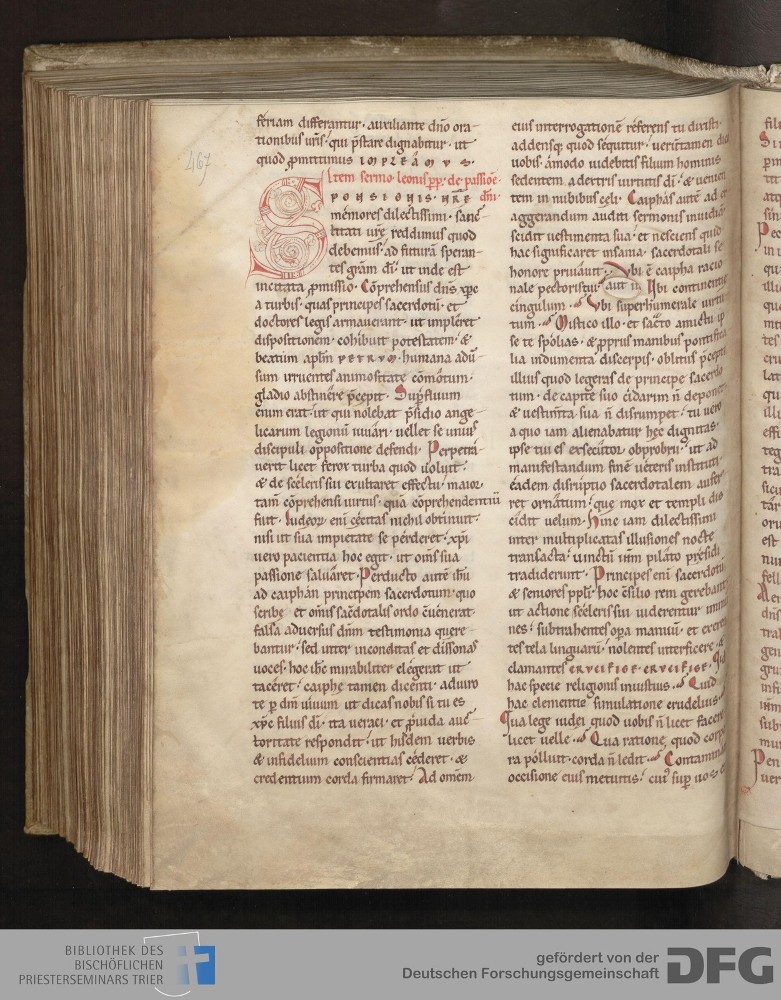 467
feriam differantur· auxiliante dño ora
tionibus uris· qui pstare dignabitur· ut
quod pmittimus IMPLEAMUS·
Item sermo leonis pp· de passione
PONSIONIS· NRE dni
memores dilectissimi· sanc
titati ure reddimus quod
debemus· ad futura speran
tes gram di· ut inde est
incitata pmissio· Coprehensus dns xpc
a turbis· quas principes sacerdotu· et
doctores legis armauerant· ut impleret
dispositionem· cohibuit potestatem· &
beatum aplm PETRUM· humana adu
sum irruentes animositate comotum·
gladio abstinere pcepit· Supfluum
enim erat· ut qui nolebat psidio ange
licarum legionu iuuari· uellet se unius
discipuli oppositione defendi· Perpetra
uerit licet ferox turba quod uoluit·
& de sceleris sui exultaret effectu· maior
tam coprehensi uirtus· qua coprehendentiu
fuit· Iudeor eni cecitas nichil obtinuit·
nisi ut sua impietate se perderet· xpi
uero pacientia hoc egit· ut oms sua
passione saluaret· Perducto aute ihu
ad caiphan principem sacerdotum· quo
scribe et omis sacdotalis ordo cuenerat·
falsa aduersus dnm testimonia quere
bantur· sed inter inconditas et dissonas
uoces· hoc ihc mirabiliter elegerat ut
taceret· caiphe tamen dicenti· adiuro
te p dm uiuum ut dicas nobis si tu es
xpc filius di· ita ueraci· et puida auc
toritate respondit· ut hisdem uerbis
& infidelium conscientias cederet· &
credentium corda firmaret· Ad omem
eius interrogatione referens tu dixisti·
addensq quod sequitur· ueru̅tamen dico
uobis· amodo uidebitis filium hominis
sedentem a dextris uirtutis di· & uenien
tem in nubibus celi· Caiphas aute ad ex
aggerandum auditi sermonis inuidia
scidit uestimenta sua· et nesciens quid
hac significaret insania· sacerdotali se
honore priuauit· Ubi e caipha racio
nale pectoris tui· aut Ubi continentie
cingulum· Ubi superhumerale uirtu
tum· Mistico illo· et sacro amictu ip
se te spolias· & ppriis manibus pontifica
lia indumenta discerpis· oblitus pcepti
illius quod legeras de principe sacerdo
tum· de capite suo cidarim n deponet·
& uestimta sua n disrumpet· tu uero
a quo iam alienabatur hec dignitas·
ipse tui es exsecutor obprobrii· ut ad
manifestandum fine ueteris instituti·
eadem disruptio sacerdotalem aufer
ret ornatum· que mox et templi dis
cidit uelum· Hinc iam dilectissimi
inter multiplicatas illusiones nocte
transacta· uinctu ihm pilato presidi
tradiderunt· Principes eni sacerdotu
& seniores ppli· hoc csilio rem gerebant
ut actione sceleris sui uiderentur immu
nes· subtrahentes opa manuu· et exeren
tes tela linguaru· nolentes interficere· &
clamantes CRUCIFIGE· CRUCIFIGE· Quid
hac specie religionis iniustius· Quid
hac clementie simulatione crudelius·
Qua lege iudei quod uobis n licet facere
licet uelle· Qua ratione quod corpo
ra polluit· corda n ledit· Contamina
occisione eius metuitis· cui sup uos
BIBLIOTHEK DES
BISCHÖFLICHEN
PRIESTERSEMINARS TRIER
gefördert von der
Deutschen Forschungsgemeinschaft
DFG